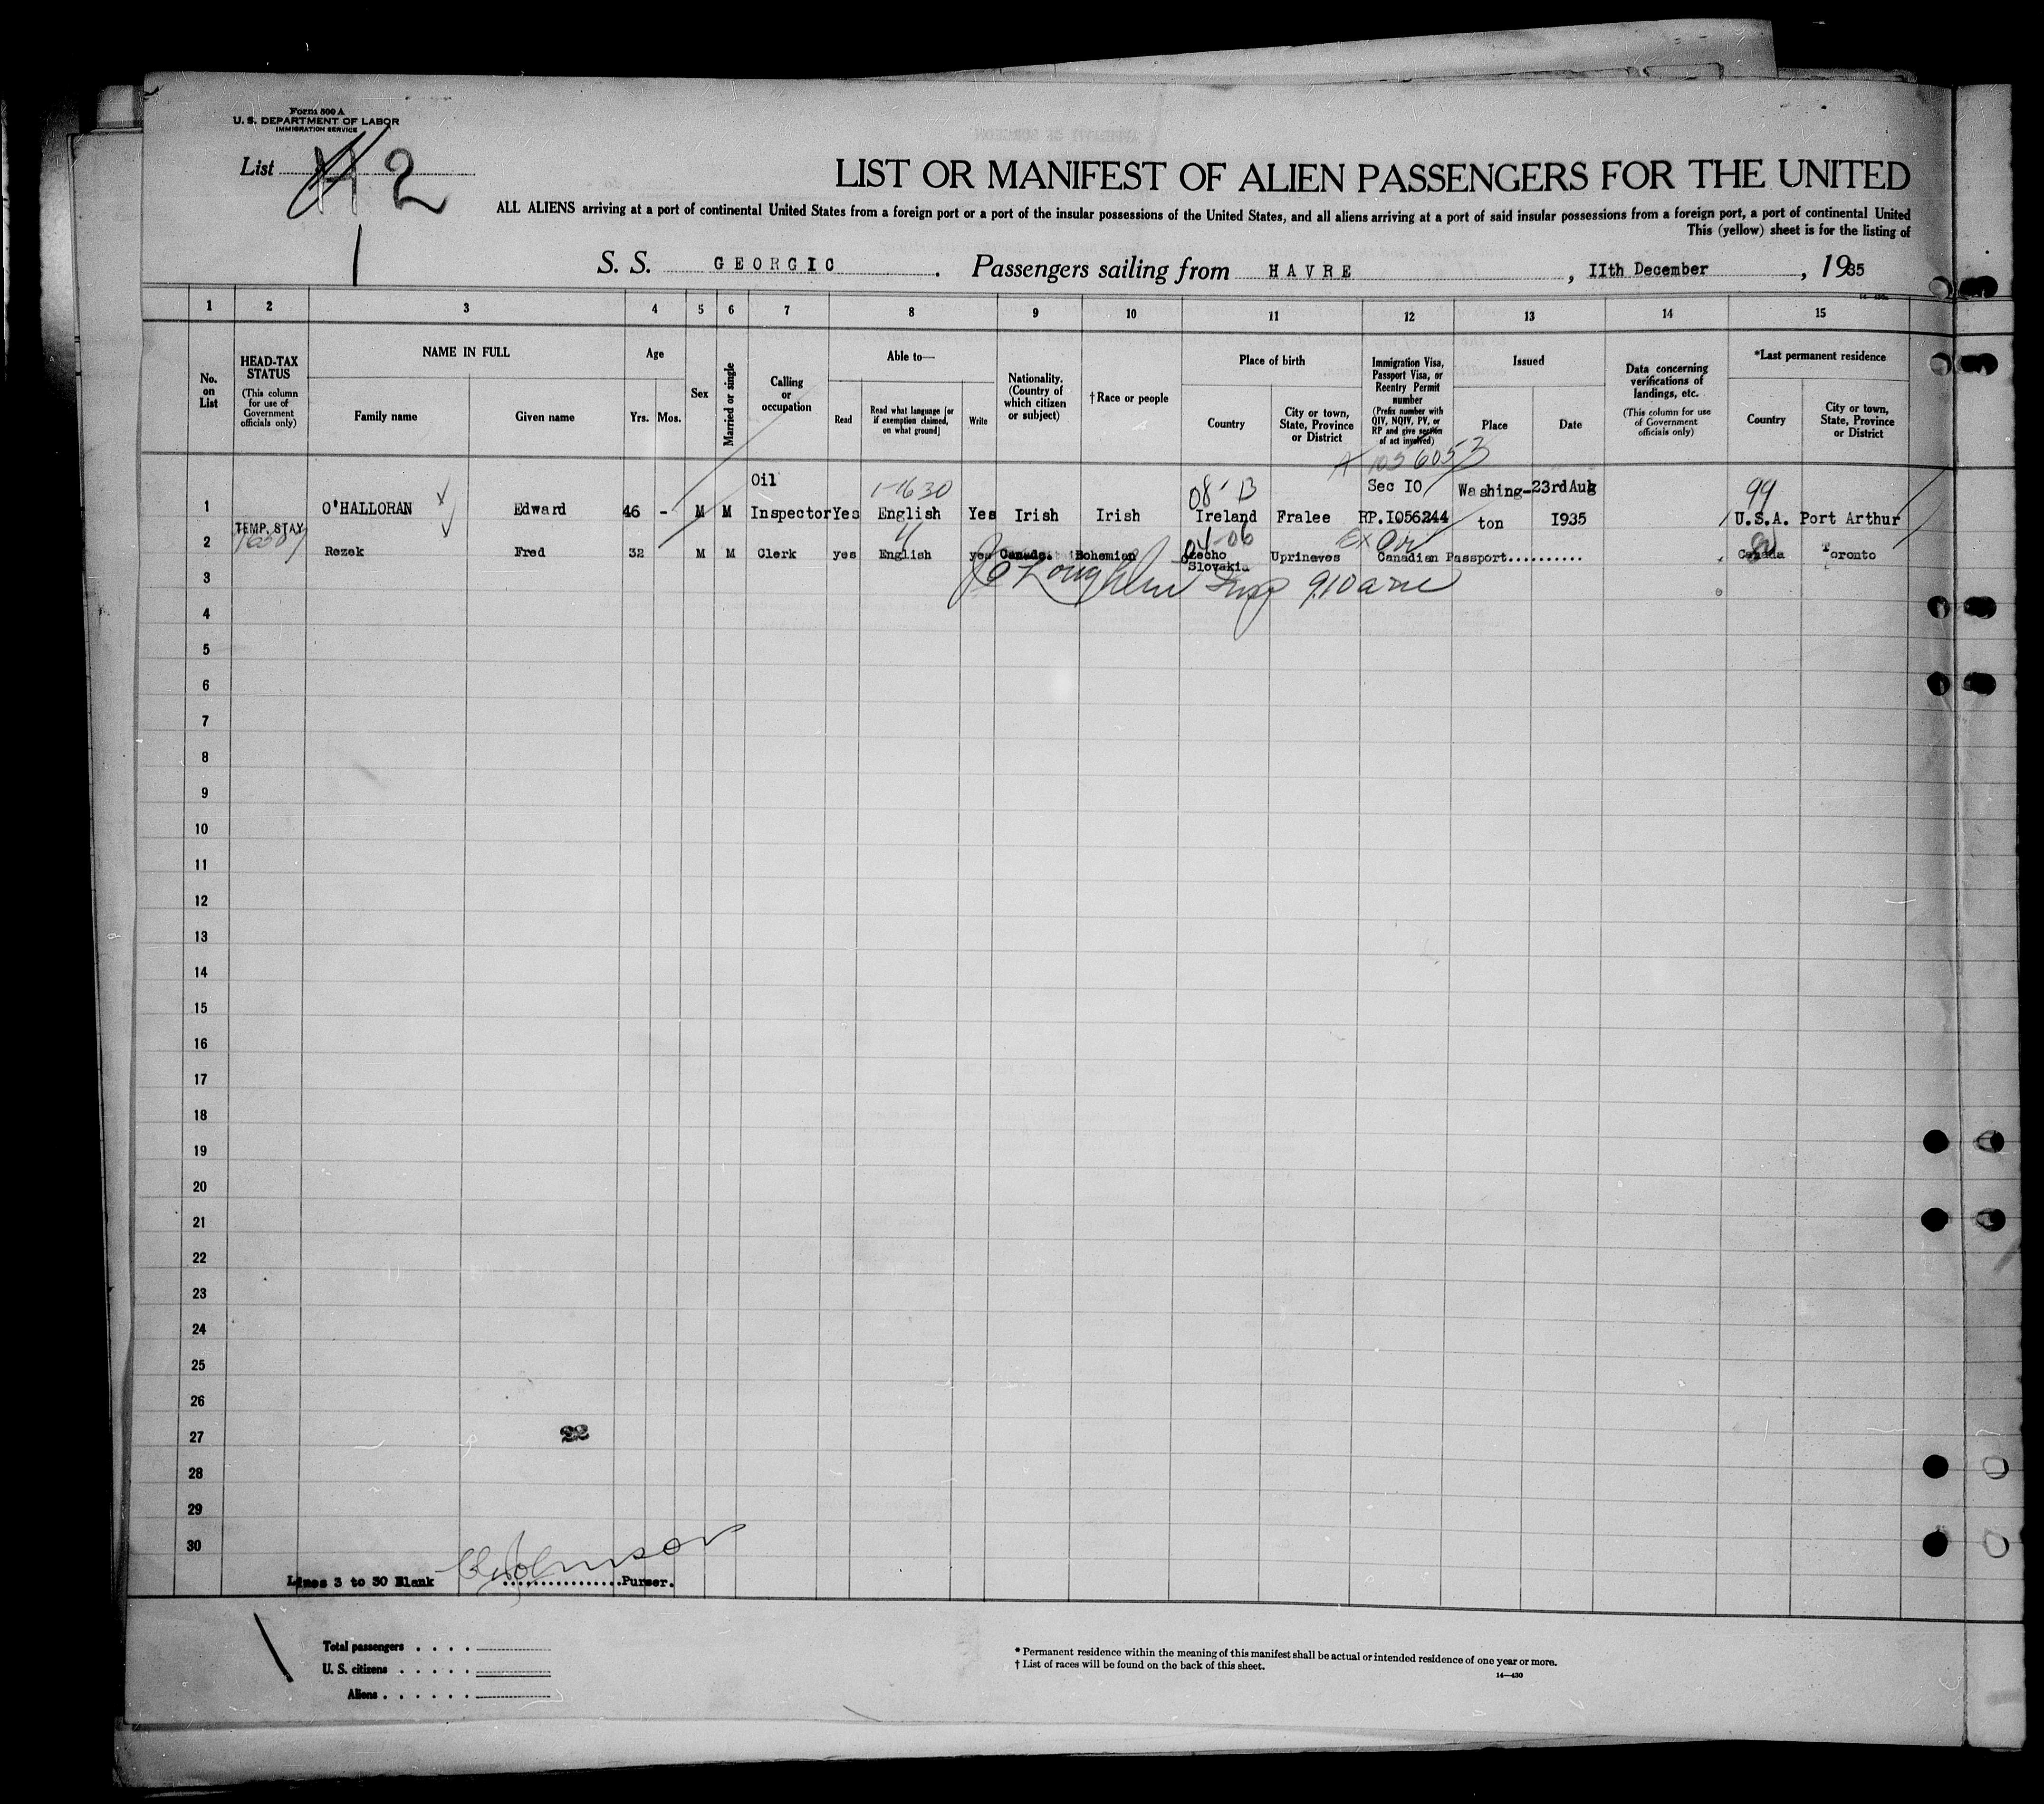 Form 500 A
U. S. DEPARTMENT OF LABOR
IMMIGRATION SERVICE
List 2
1
LIST OR MANIFEST OF ALIEN PASSENGERS FOR THE UNITED
ALL ALIENS arriving at a port of continental United States from a foreign port or a port of the insular possessions of the United States, and all aliens arriving at a port of said insular possessions from a foreign port, a port of continental United
This (yellow) sheet is for the listing of
S. S. GEORGIC. Passengers sailing from HAVRE, IIth December, 1935
1 2 3 4 5 6 7 8 9 10 11 12 13 14 15
No. on List
HEAD-TAX STATUS
(This column for use of Government officials only)
NAME IN FULL
Family name
Given name
Age
Yrs. Mos.
Sex
Married or single
Calling or occupation
Able to—
Read
Read what language [or if exemption claimed, on what ground]
Write
Nationality. (Country of which citizen or subject)
†Race or people
Place of birth
Country
City or town, State, Province or District
Immigration Visa, Passport Visa, or Reentry Permit number
(Prefix number with QIV, NQIV, PV, or RP and give section of act involved)
Issued
Place
Date
Data concerning verifications of landings, etc.
(This column for use of Government officials only)
*Last permanent residence
Country
City or town, State, Province or District
A 1056053
Oil 1-1630 08' B Sec IO Washing- 23rdAug 99
1 O'HALLORAN Edward 46 - M M Inspector Yes English Yes Irish Irish Ireland Fralee RP.I056244 ton I935 U.S.A. Port Arthur
TEMP. STAY
04-06
2 Rezek Fred 32 M M Clerk yes English yes Canada. Bohemian Czecho Slovakia Uprineves Canadian Passport.......... Canada Toronto
910am
3
4
5
6
7
8
9
10
11
12
13
14
15
16
17
18
19
20
21
22
23
24
25
26
27
22
28
29
30
Lines 3 to 30 Blank Johnson .................Purser.
Total passengers . . . .
U. S. citizens . . . . .
Aliens . . . . . .
* Permanent residence within the meaning of this manifest shall be actual or intended residence of one year or more.
† List of races will be found on the back of this sheet.
14—430